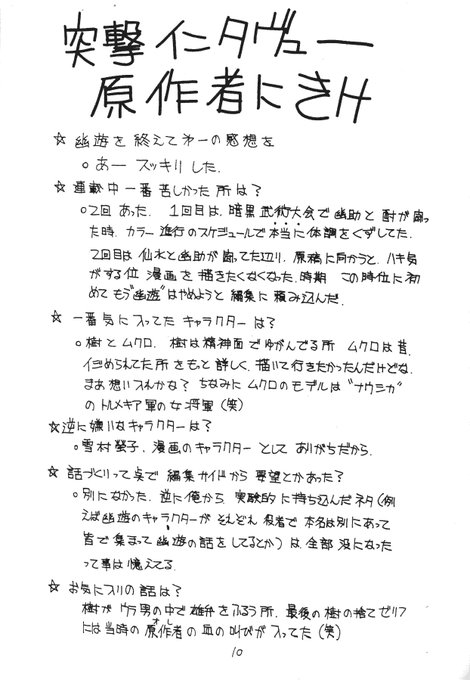 突撃インタヴュー
原作者にきけ
☆ 幽遊を終えて才一の感想を
○ あー スッキリした.
☆ 連載中一番苦しかった所は?
○2回あった. 1回目は、暗黒武術大会で幽助と酎が闘っ
た時. カラー進行のスケジュールで本当に体調をくずしてた.
2回目は仙水と幽助が闘ってた辺り. 原稿に向かうと、ハキ気
がする位 漫画を描きたくなくなった時期 この時位に初
めてもう"幽遊"はやめようと編集に頼み込んだ.
☆ 一番気に入ってたキャラクターは?
○樹とムクロ. 樹は精神面でゆがんでる所 ムクロは昔.
イジめられてた所をもっと詳しく描いて行きたかったんだけどな.
まあ想い入れかな? ちなみにムクロのモデルは"ナウシカ"
のトルメキア軍の女将軍(笑)
☆逆に嫌いなキャラクターは?
○雪村螢子. 漫画のキャラクターとして ありがちだから.
☆ 話づくりって点で 編集サイドから 要望とかあった?
○別になかった. 逆に俺から 実験的に持ち込んだネタ(例
えば幽遊のキャラクターが それぞれ 役者で 本名は別にあって
皆で集まって幽遊の話をしてるとか)は、全部 没になった
って事は憶えてる.
☆ お気に入りの話は?
樹が ウラ男の中で 雄弁をふるう所. 最後の樹の捨てゼリフ
には当時の原作者の血の叫びが入ってた(笑)
オレ
10